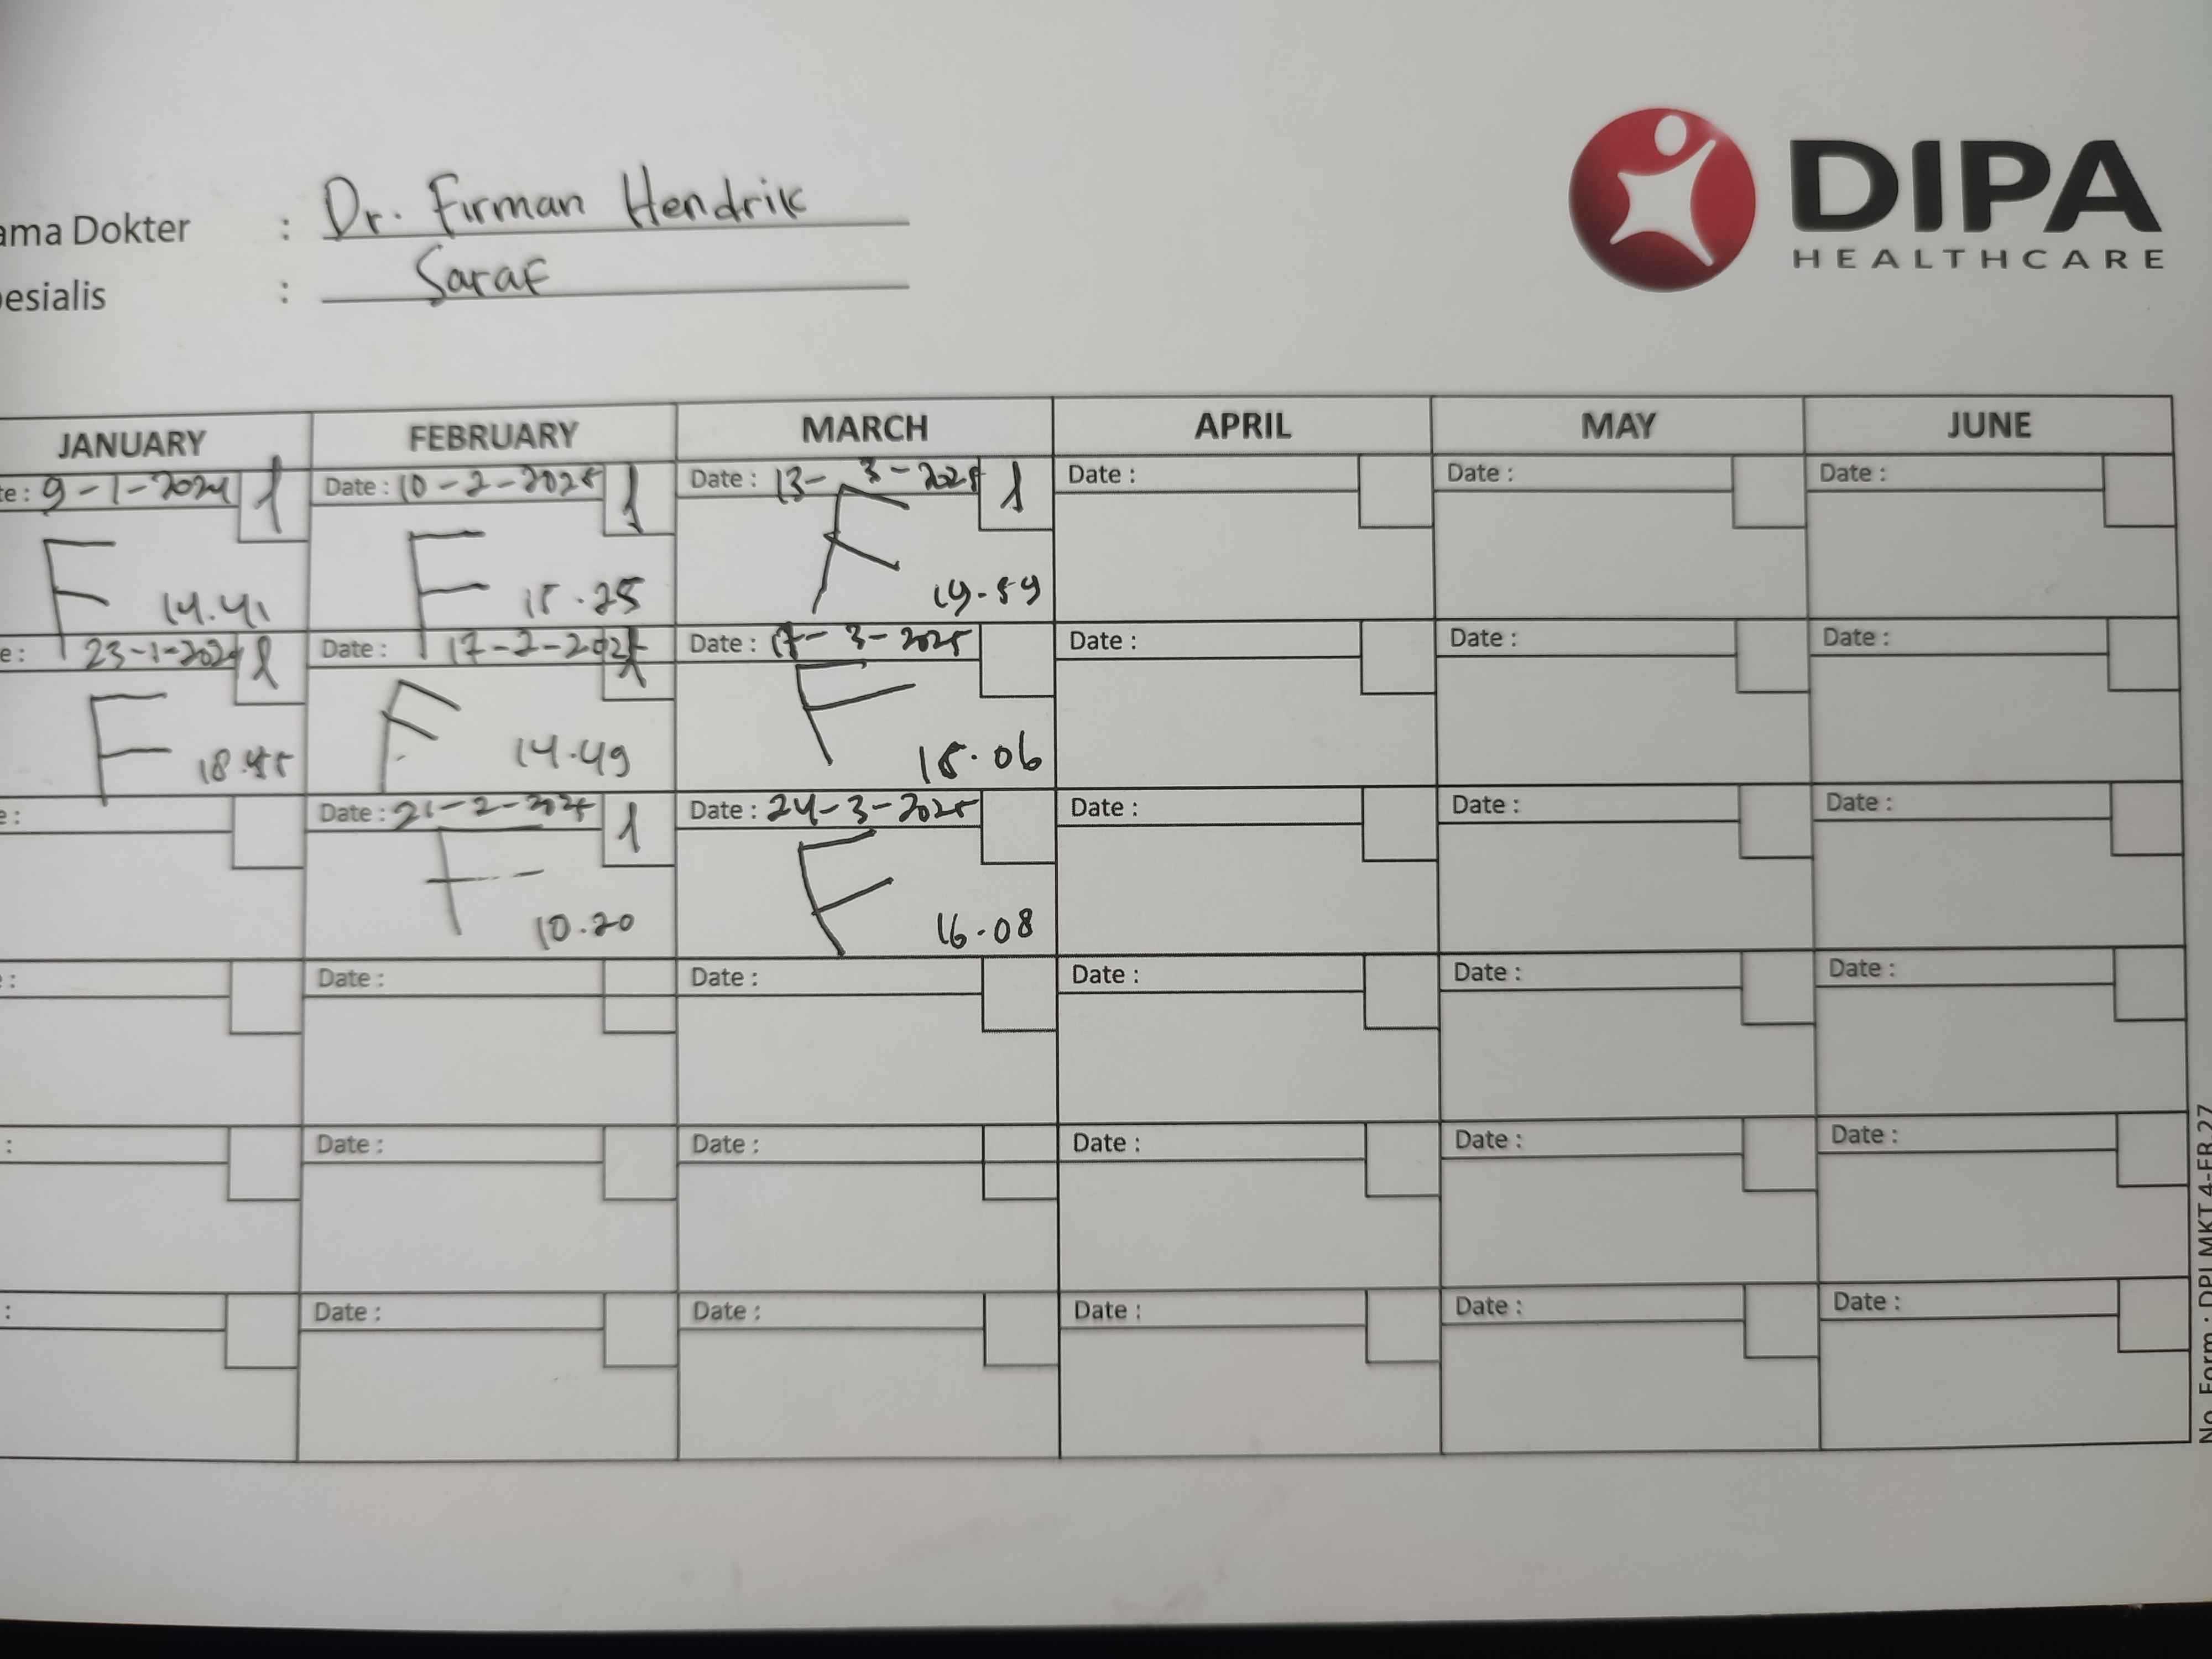 DIPA
HEALTHCARE
ama Dokter : Dr. Firman Hendrik
esialis : Saraf
JANUARY FEBRUARY MARCH APRIL MAY JUNE
te : 9-1-2024 1 Date : 10-2-2025 1 Date : 13-3-2025 1 Date : Date : Date :
F 14.41 F 15.25 F 19.59
e : 23-1-2024 1 Date : 17-2-2025 1 Date : 17-3-2025 Date : Date : Date :
F 18.45 F 14.49 F 15.06
e : Date : 21-2-2025 1 Date : 24-3-2025 Date : Date : Date :
F 10.20 F 16.08
: Date : Date : Date : Date : Date :
: Date : Date : Date : Date : Date :
: Date : Date : Date : Date : Date :
No. Form : DPI.MKT.4-FR.27